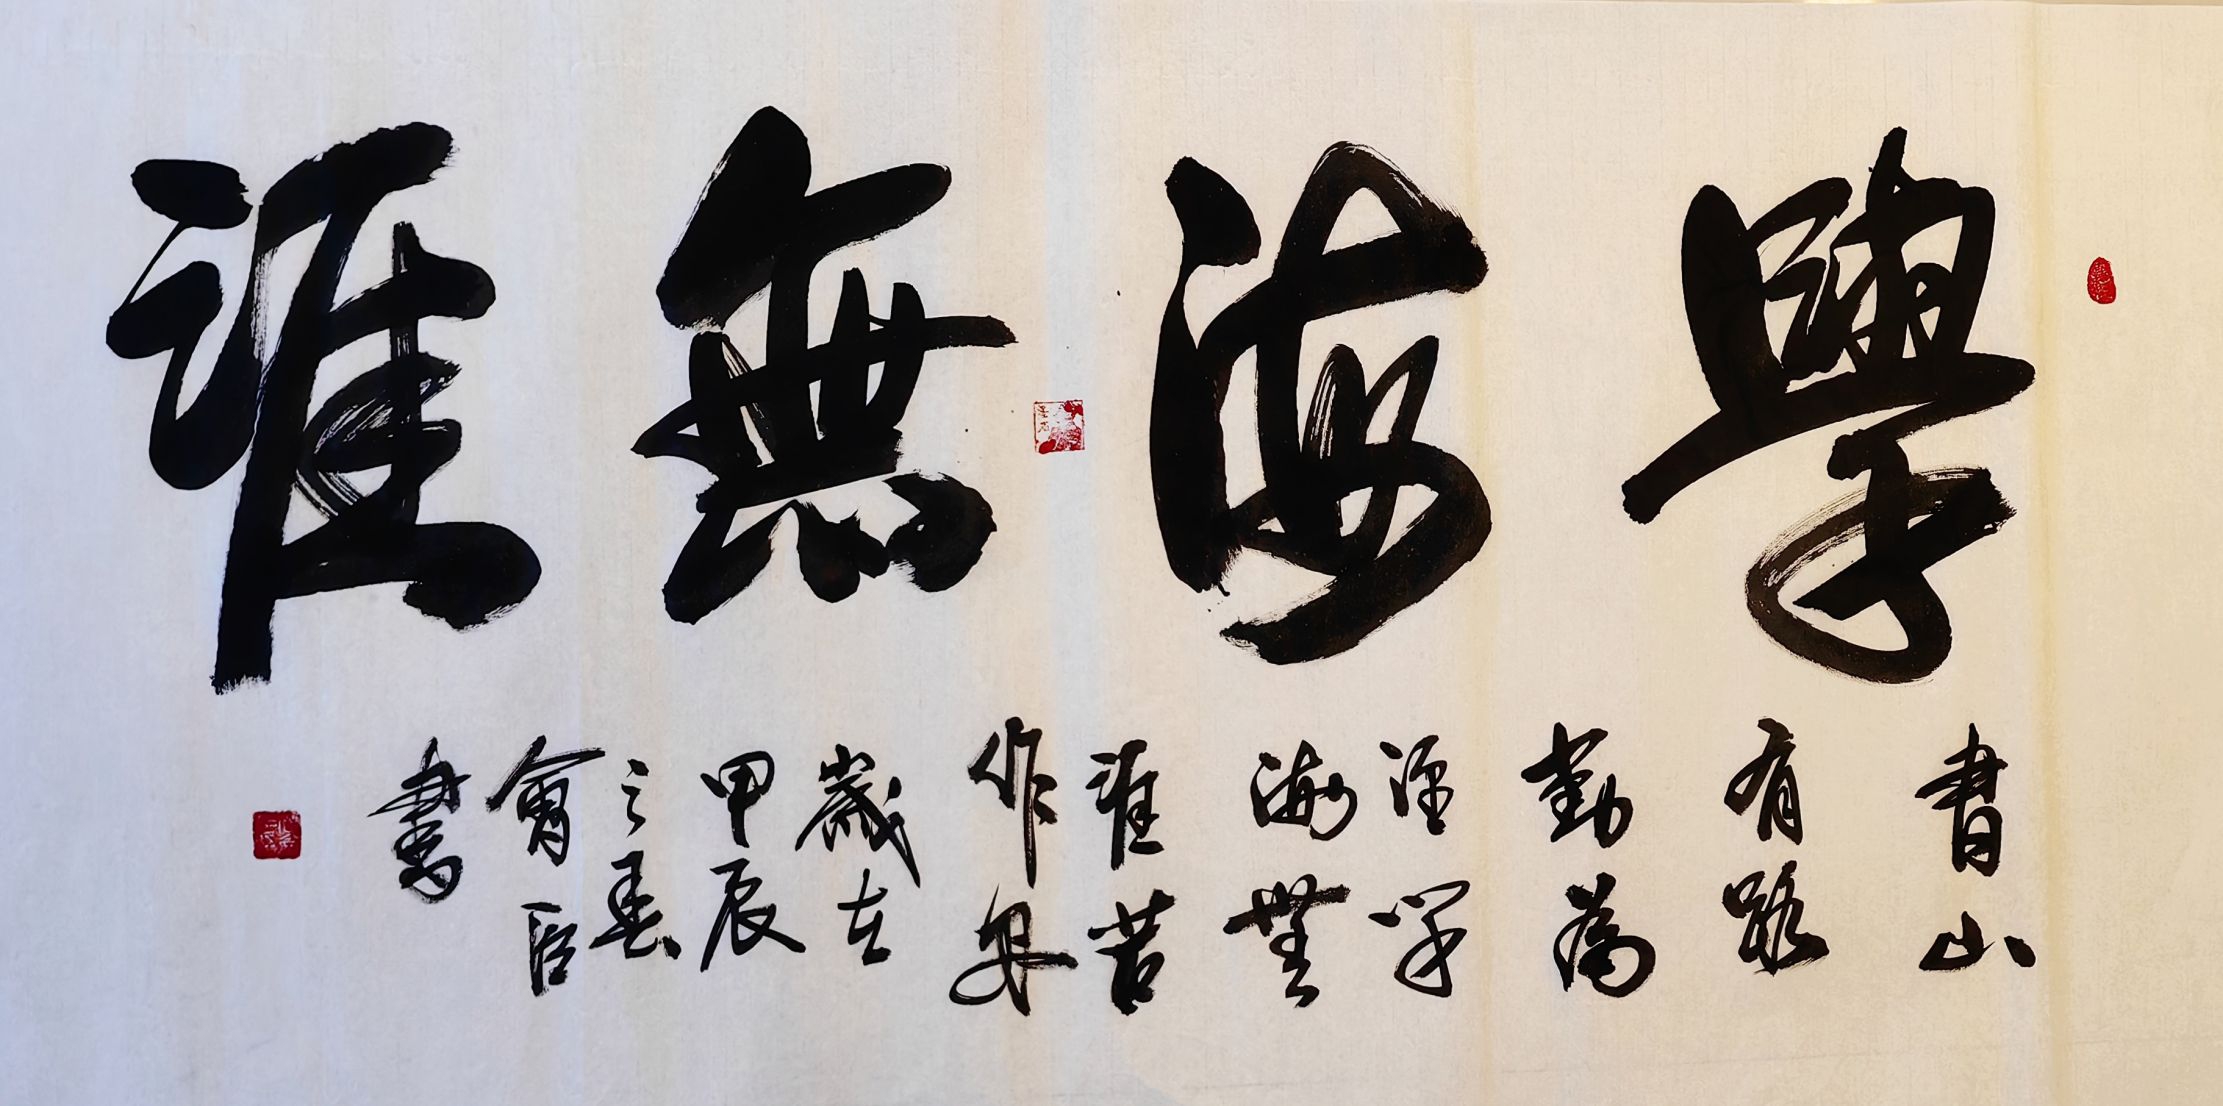 學海無涯
書山
有路
勤為
徑學
海無
涯苦
作舟
歲在
甲辰
之春
會臣
書